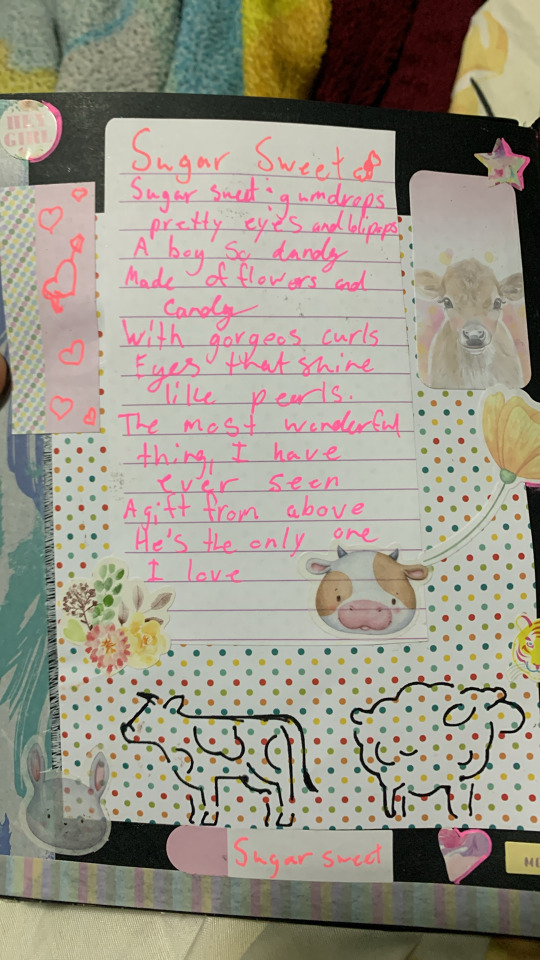 HEY
GIRL
Sugar Sweet
Sugar sweet gumdrops
pretty eye's and lolipops
A boy so dandy
Made of flowers and
candy
With gorgeos curls
Eyes that shine
like perls.
The most wonderful
thing, I have
ever seen
A gift from above
He's the only one
I love
Sugar sweet